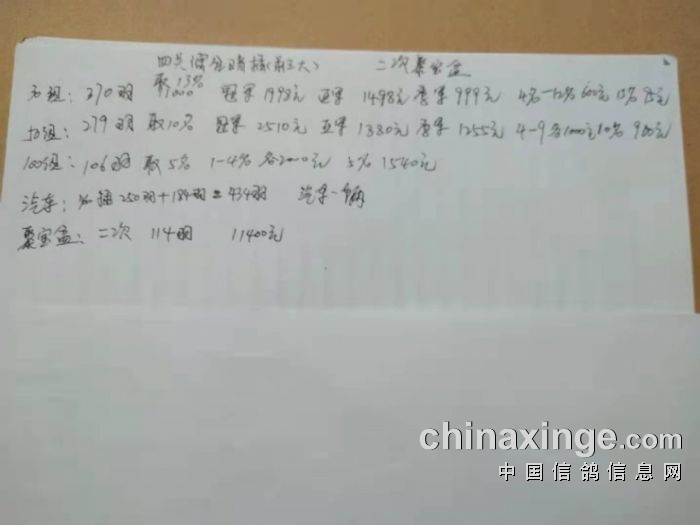 四关 赔 指插(前三大) 二次聚宝盆
取13名
30组: 270羽 冠军1998元 亚军1498元 季军999元 4名-12名600元 13名 元
50组: 279羽 取10名 冠军2510元 亚军1880元 季军1255元 4-9各1000元10名 900元
100组: 106羽 取5名 1-4名 各2000元 5名 1540元
汽车: 插250羽+184羽=434羽 汽车一辆
聚宝盆: 二次 114羽 11400元
chinaxinge.com
中国信鸽信息网